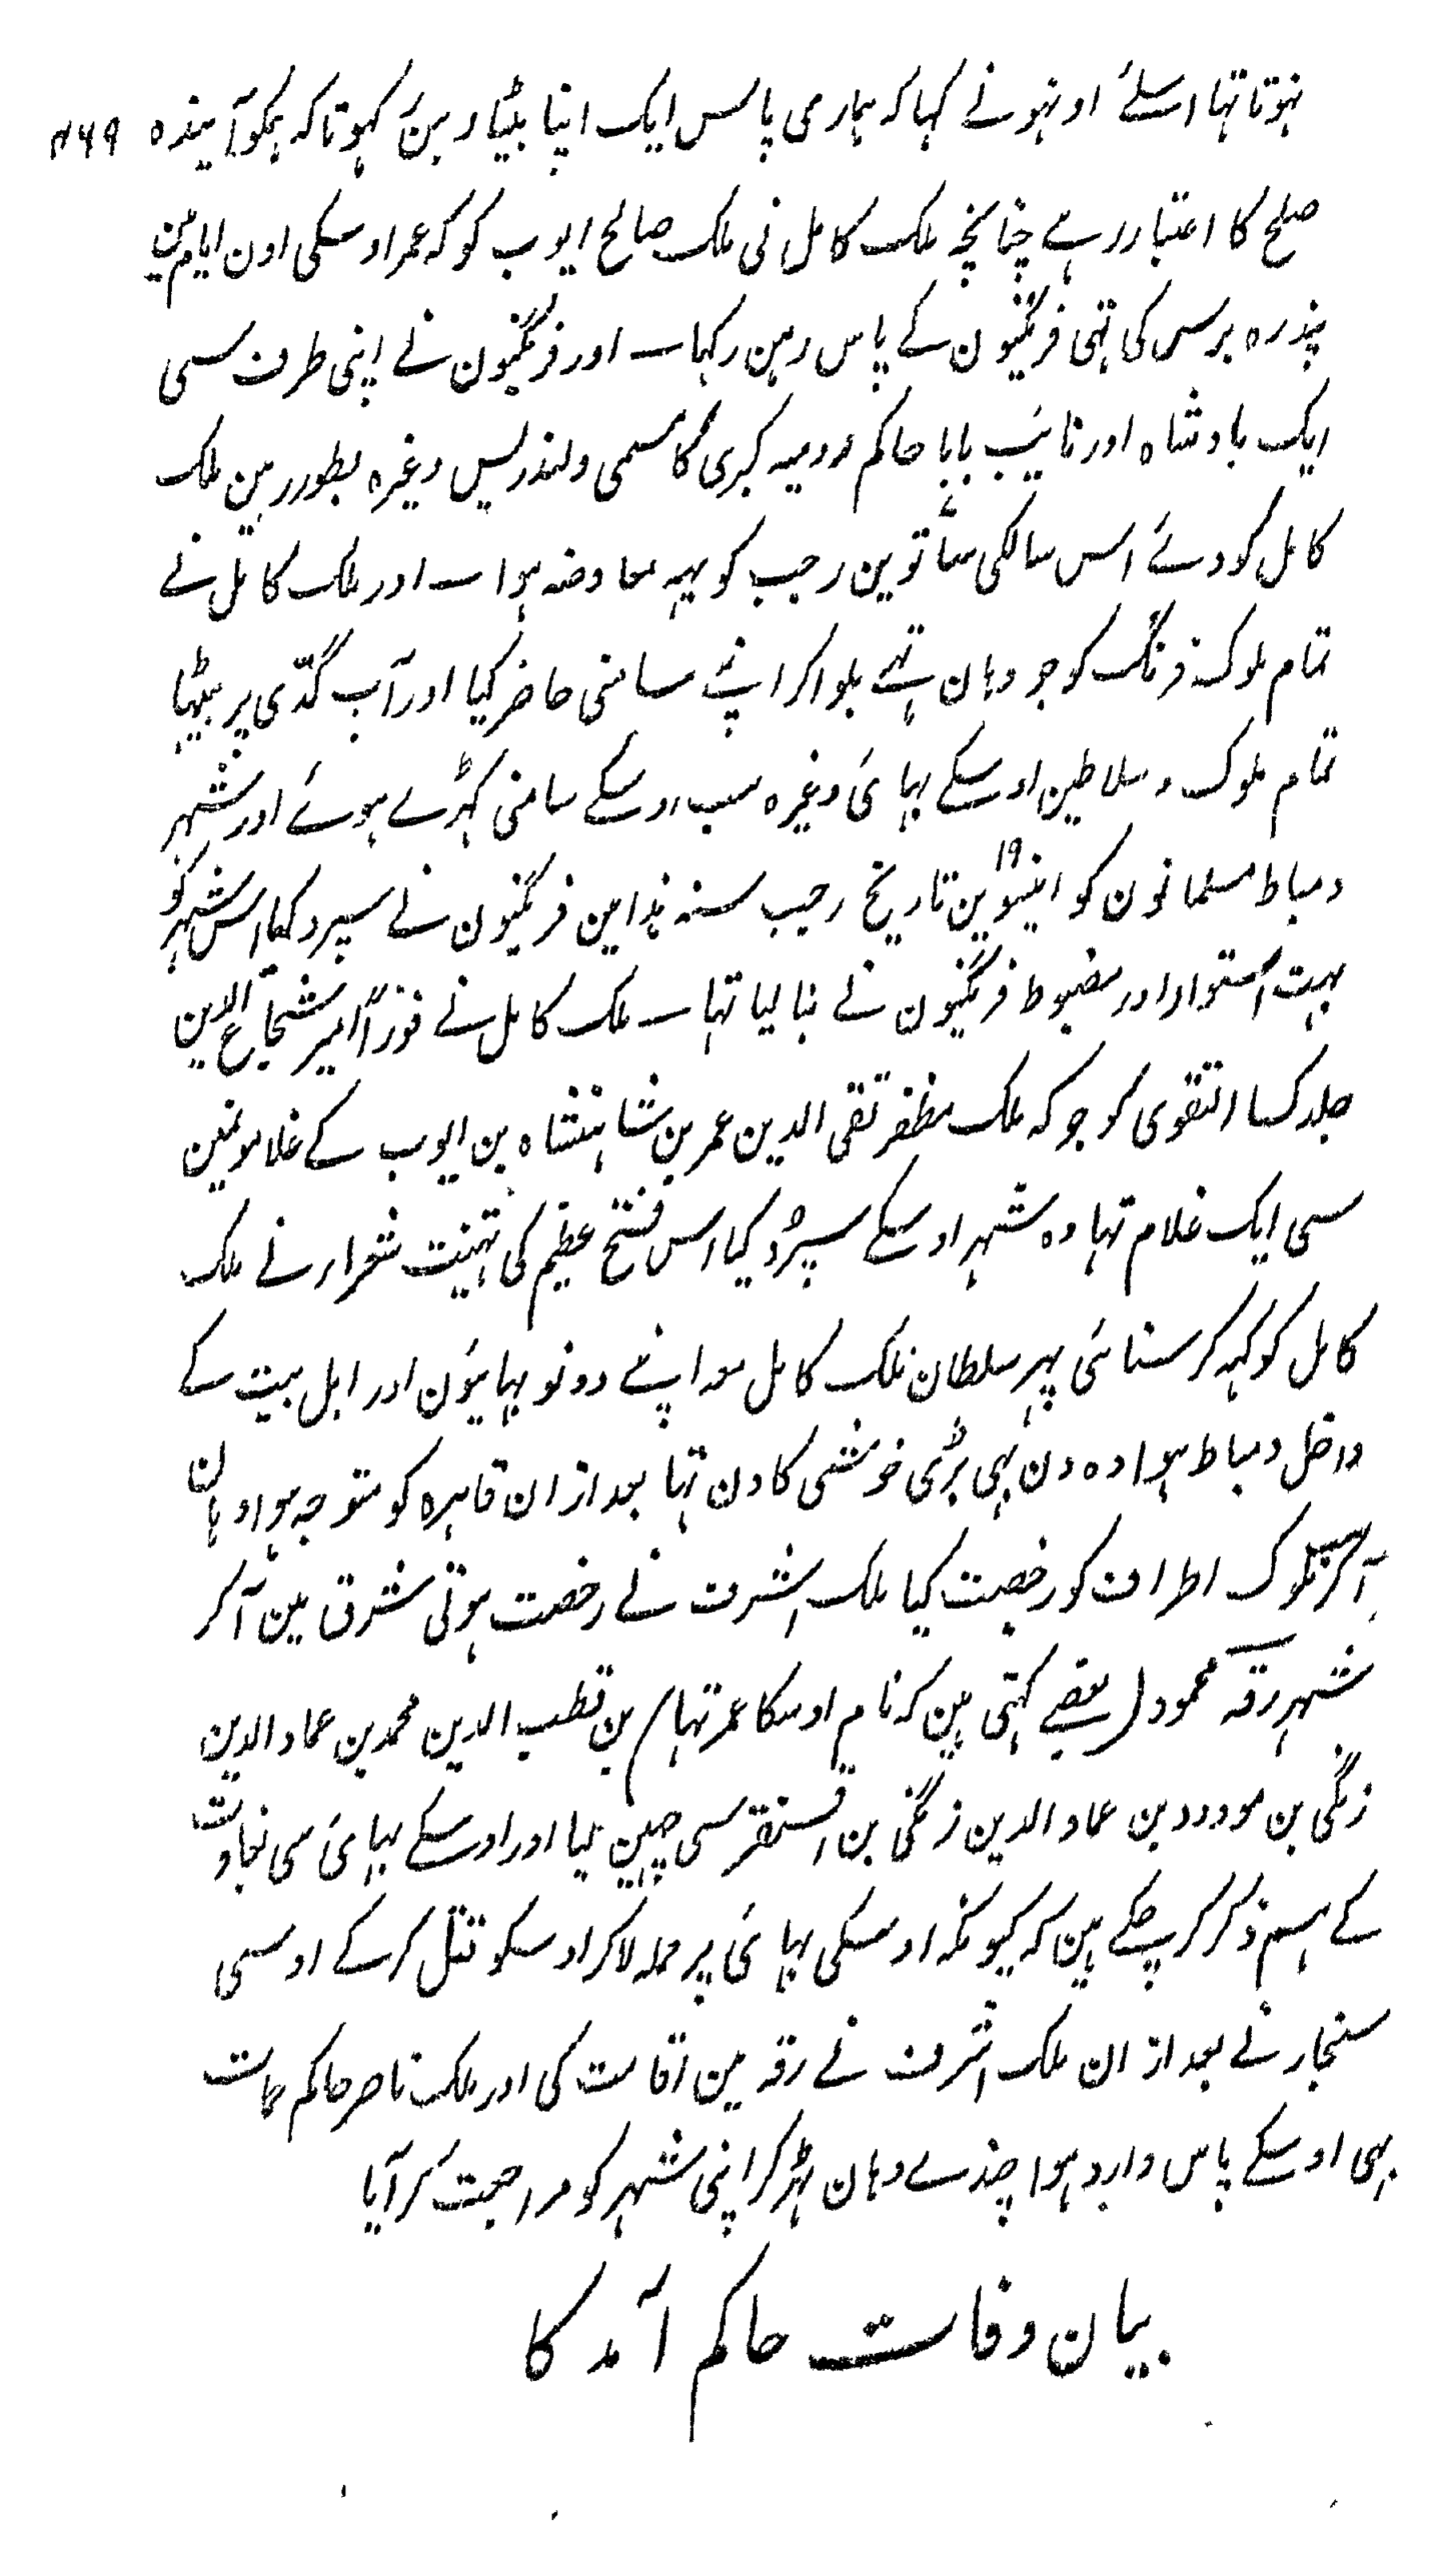 نہوتا تہا اسلئے اونہونے کہا کہ ہماری پاس ایک اپنا بیٹا رہن رکہو تاکہ ہمکو آیندہ
صلح کا اعتبار رہے چنانچہ ملک کامل نی ملک صالح ایوب کو کہ عمر اوسکی اون ایام مین
پندرہ برس کی تہی فرنگیون کے پاس رہن رکہا ۔ اور فرنگیون نے اپنی طرف سی
ایک بادشاہ اور نایب بابا حاکم رومیہ کبری کا مسمی ولندریس وغیرہ بطور رہن ملک
کامل کو دئے اس سالکی ساتوین رجب کو یہہ معاوضہ ہوا ۔ اور ملک کامل نے
تمام ملوک فرنگ کو جو وہان تہے بلوا کر اپنے سامنی حاضر کیا اور آپ گدّی پر بیٹہا
تمام ملوک و سلاطین اوسکے بہائی وغیرہ سب اوسکے سامنی کہڑے ہوئے اور شہر
دمیاط مسلمانون کو اونیسوین ۱۹ تاریخ رجب سنہ ہذا مین فرنگیون نے سپرد کیا اس شہر کو
بہت استوار اور مضبوط فرنگیون نے بنا لیا تہا ۔ ملک کامل نے فوراً امیر شجاع الدین
جلدک التقوی کو جو کہ ملک مظفر تقی الدین عمر بن شاہنشاہ بن ایوب کے غلامونمین
سی ایک غلام تہا وہ شہر اوسکے سپرُد کیا اس فتح عظیم کی تہنیت شعراء نے ملک
کامل کو کہہ کر سنائی پہر سلطان ملک کامل معہ اپنے دونو بہائیون اور اہل بیت کے
داخل دمیاط ہوا وہ دن بہی بڑی خوشی کا دن تہا بعد ازان قاہرہ کو متوجہ ہوا وہان
آکر سب ملوک اطراف کو رخصت کیا ملک اشرف نے رخصت ہوتی شرق مین آکر
شہر رقہ محمود (بعضے کہتی ہین کہ نام اوسکا عمر تہا) بن قطب الدین محمد بن عماد الدین
زنگی بن مودود بن عماد الدین زنگی بن اقسنقر سی چہین لیا اور اوسکے بہائی سی بغاوت
کے ہم ذکر کر چکے ہین کہ کیونکہ اوسکی بہائی پر حملہ لا کر اوسکو قتل کر کے اوسی
سنجار نے بعد ازان ملک اشرف نے رقہ مین اقامت کی اور ملک ناصر حاکم حمات
بہی اوسکے پاس وارد ہوا چندے وہان ٹہر کر اپنی شہر کو مراجعت کر آیا
بیان وفات حاکم آمد کا